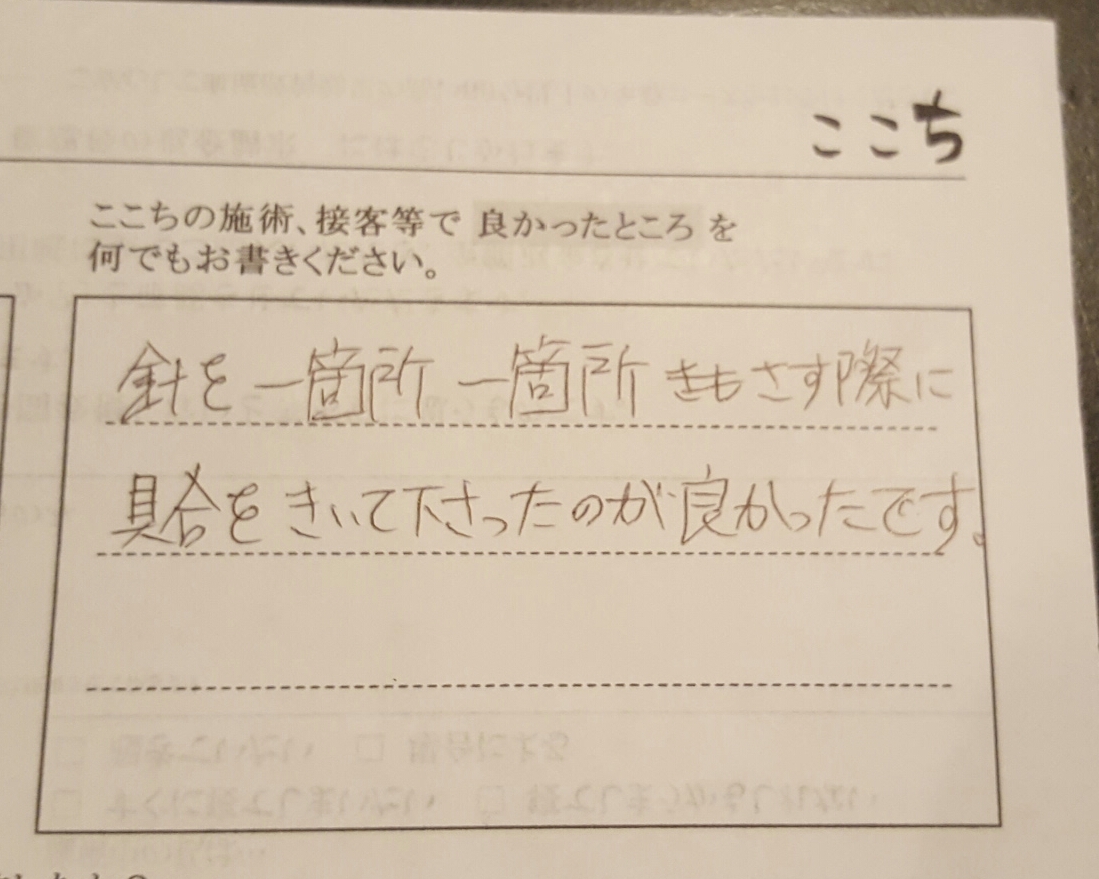 ここち
ここちの施術、接客等で 良かったところ を
何でもお書きください。
針を 一箇所 一箇所 きもさす際に
具合を きいて下さったのが 良かったです。